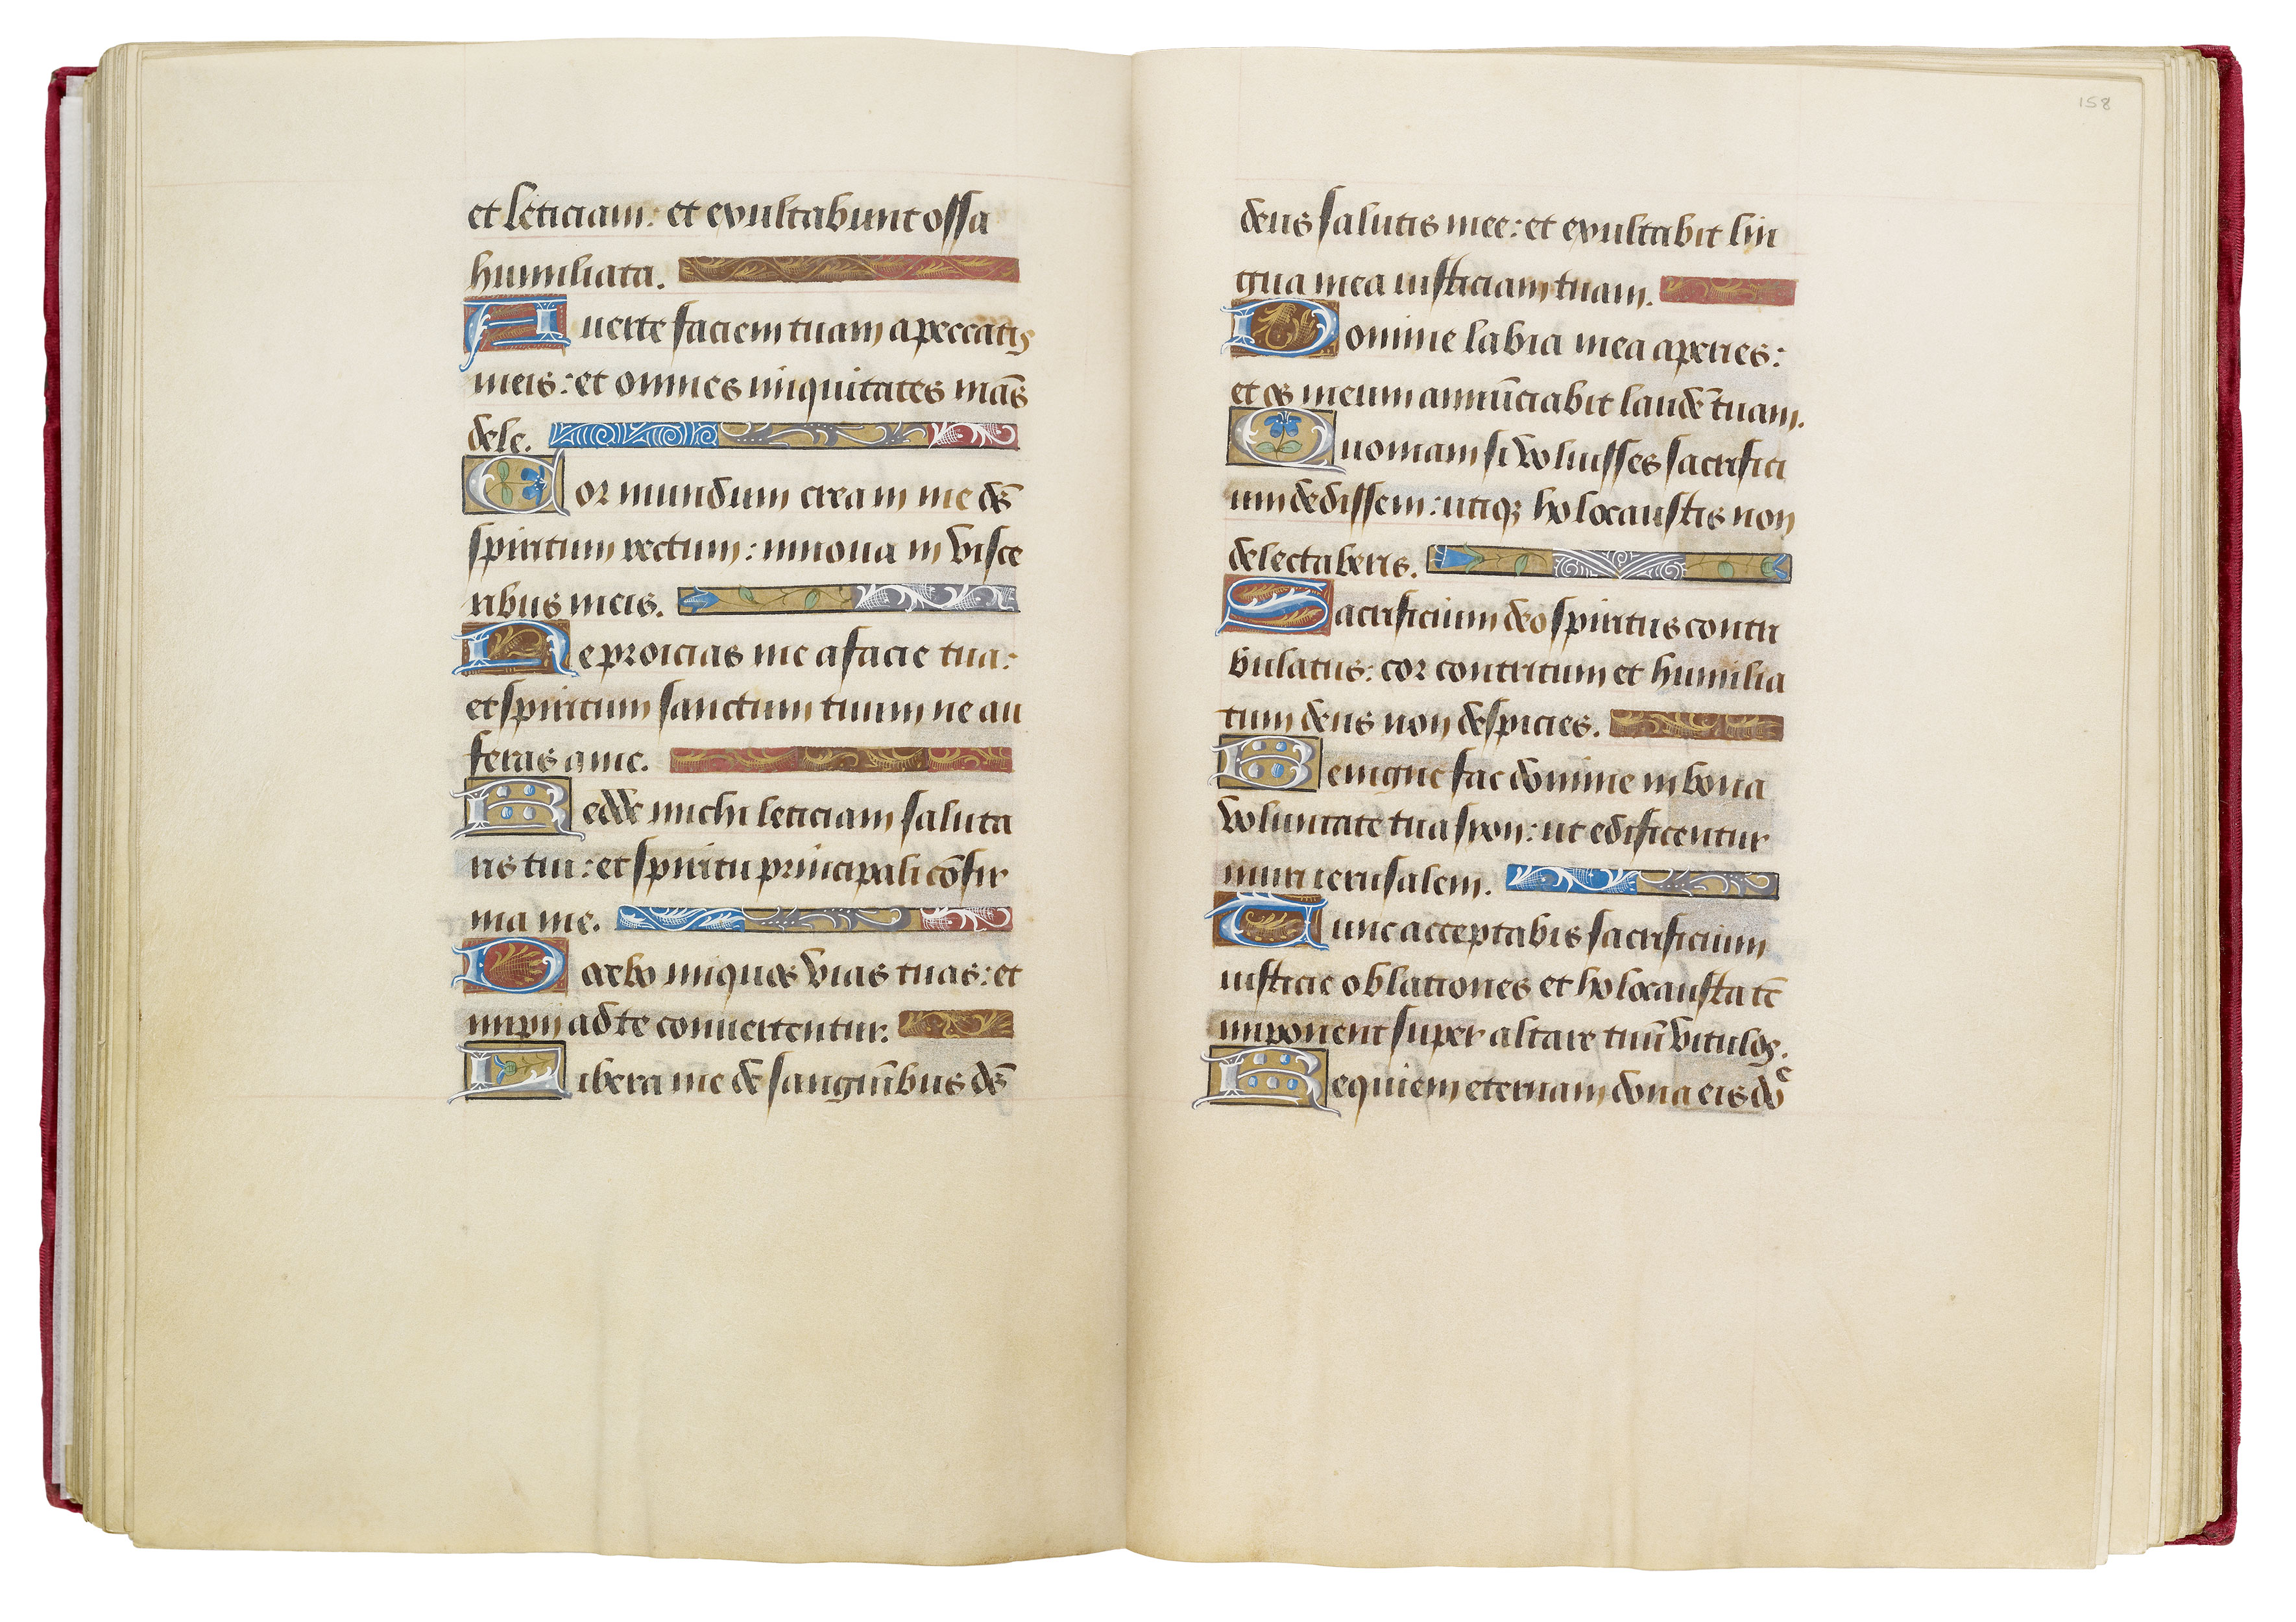 et leticiam: et exultabunt ossa
humiliata.
Auerte faciem tuam a peccatis
meis: et omnes iniquitates meãs
dele.
Cor mundum crea in me ds̄
spiritum rectum: innoua in visce
ribus meis.
Ne proicias me a facie tua:
et spiritum sanctum tuum ne au
feras a me.
Redde michi leticiam saluta
ris tui: et spiritu principali cōfir
ma me.
Docebo iniquos vias tuas: et
impii ad te conuertentur.
Libera me de sanguībus ds̄
158
deus salutis mee: et exultabit lin
gua mea iusticiam tuam.
Domine labia mea aperies:
et os meum annūciabit laudē tuam.
Quoniam si voluisses sacrifici
um dedissem: utiqꝫ holocaustis non
delectaberis.
Sacrificium deo spiritus contri
bulatus: cor contritum et humilia
tum deus non despicies.
Benigne fac domine in bona
voluntate tua sion: ut edificentur
muri ierusalem.
Tunc acceptabis sacrificium
iusticie oblationes et holocausta tc̄
imponent super altare tuū vitulos.
Requiem eternam dona eis doᵉ